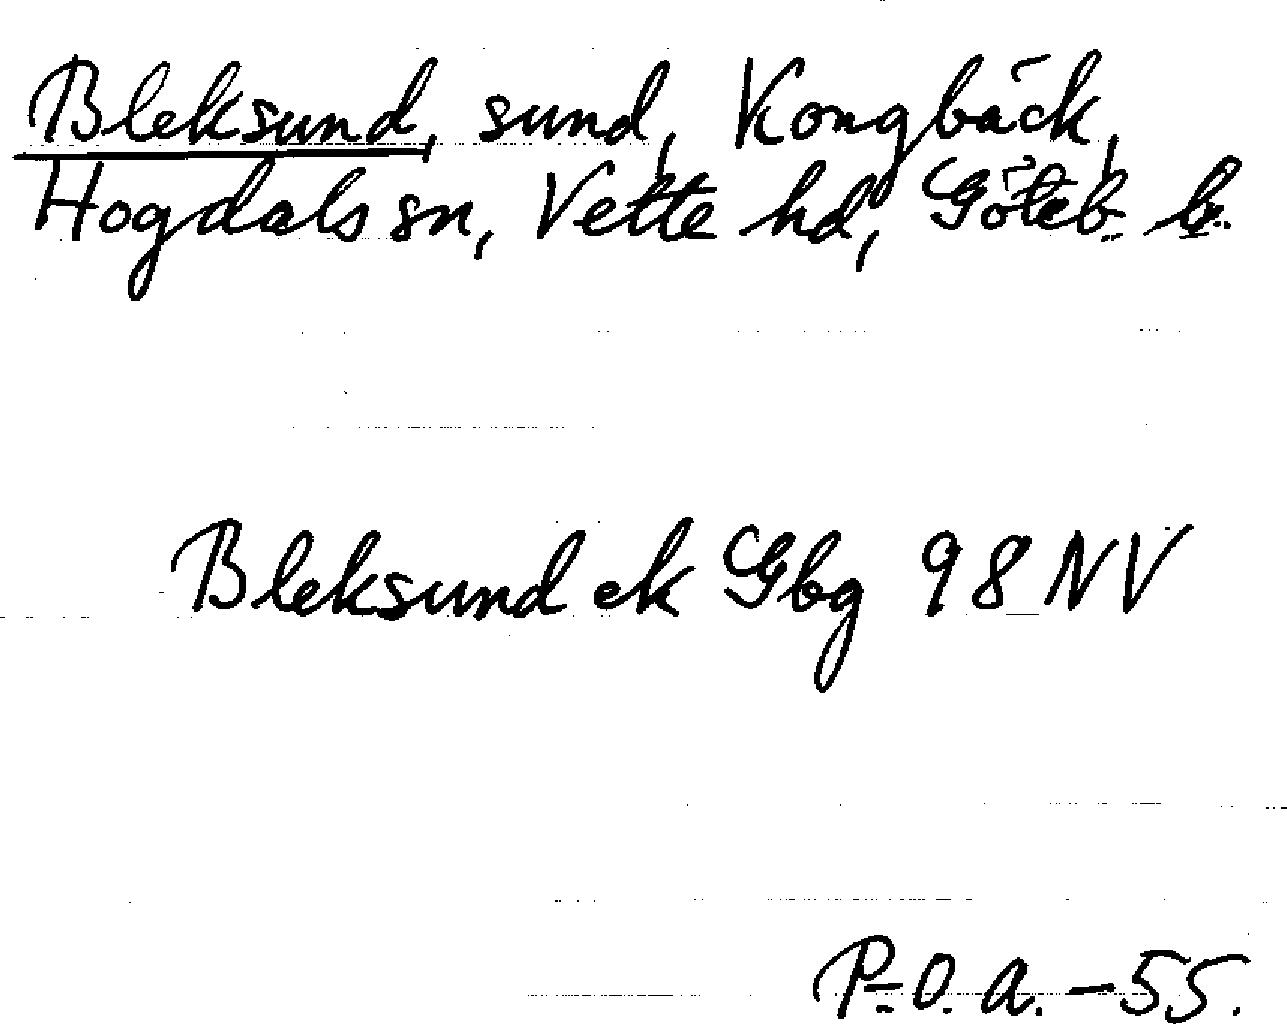 Bleksund, sund, Kongbäck,
Hogdals sn, Vette hd, Göteb. l.
Bleksund ek Gbg 98 NV
P-O. A. -55.